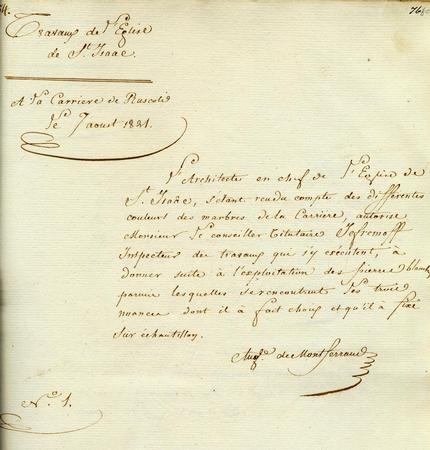 Travaux de l'Eglise
de St. Isaac.
A la Carriere de Ruscoli
le 7 aoust 1821.
L'Architecte en chef de l'Eglise de
St. Isaac, s'étant rendu compte des différentes
couleurs des marbres de la Carriere, autorise
Monsieur le conseiller titulaire Jefremoff
Inspecteur des travaux qui s'y exécutent, à
donner suite à l'exploitation des pierres
parmi lesquelles se rencontrent les trois
nuances dont il à fait choix et qu'il à fixé
sur échantillon.
Augte. de Montferrand
No. 1.